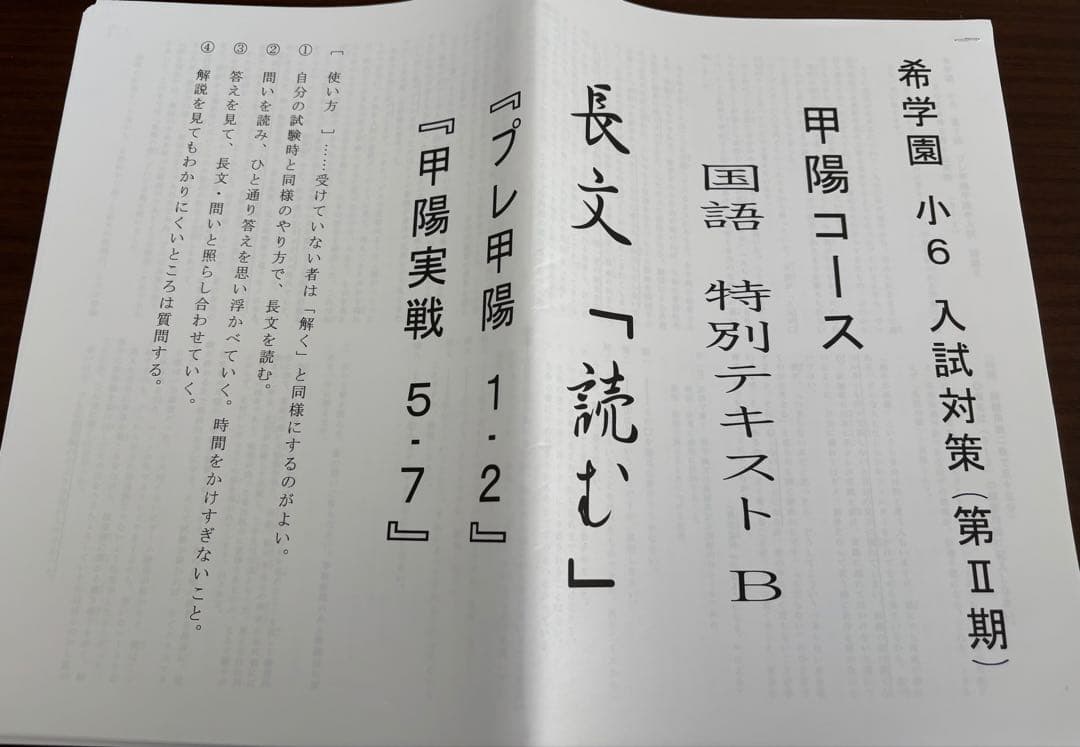 希学園 小6 入試対策(第Ⅱ期)
甲陽コース
国語 特別テキスト B
長文「読む」
『プレ甲陽 1-2』
『甲陽実戦 5-7』
[ 使い方 ]……受けていない者は「解く」と同様にするのがよい。
① 自分の試験時と同様のやり方で、長文を読む。
② 問いを読み、ひと通り答えを思い浮かべていく。時間をかけすぎないこと。
③ 答えを見て、長文・問いと照らし合わせていく。
④ 解説を見てもわかりにくいところは質問する。